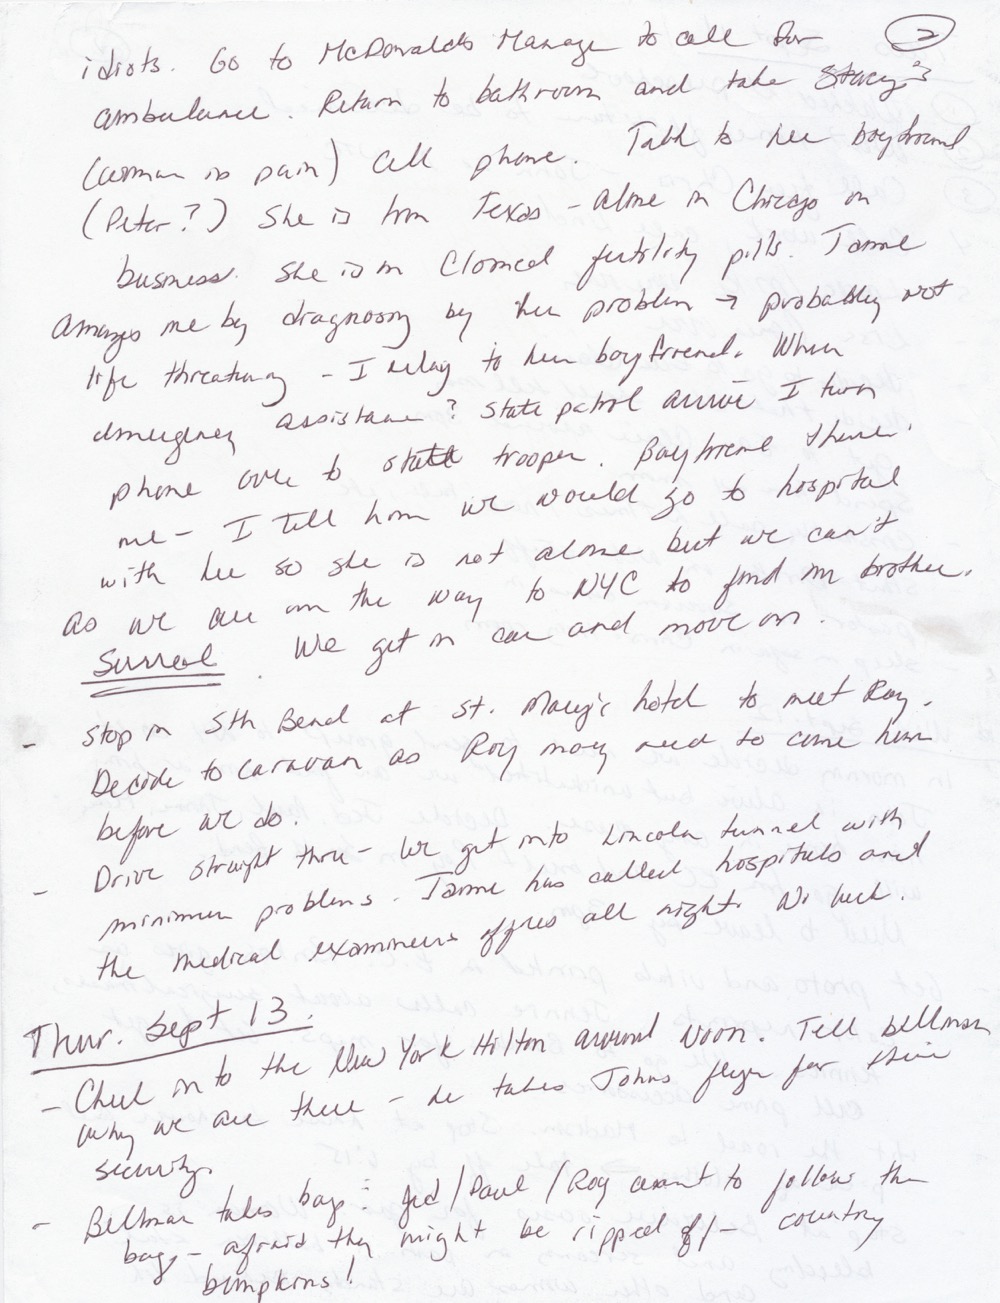 2
idiots. Go to McDonalds Manage to call for
ambulance. Return to bathroom and take Stacey's
(woman in pain) cell phone. Talk to her boyfriend
(Peter?) She is from Texas - alone in Chicago on
business. She is on Clomed fertility pills. Jamie
amazes me by diagnosing her problem → probably not
life threatening - I relay to her boyfriend. When
emergency assistance? State patrol arrive I turn
phone over to state trooper. Boyfriend thanks
me - I tell him we would go to hospital
with her so she is not alone but we can't
as we are on the way to NYC to find my brother.
Surreal We get in car and move on.
- Stop in Sth Bend at St. Mary's hotel to meet Roy.
Decide to caravan as Roy may need to come home
before we do.
- Drive straight thru - We get into Lincoln tunnel with
minimum problems. Jamie has called hospitals and
the medical examiners offices all night. No luck.
Thur. Sept 13.
- Check in to the New York Hilton around Noon. Tell bellman
why we are there - he takes Johns flyer for their
security.
- Bellman takes bags - Jed/Paul/Roy want to follow the
bags - afraid they might be ripped off - country
bumpkins!